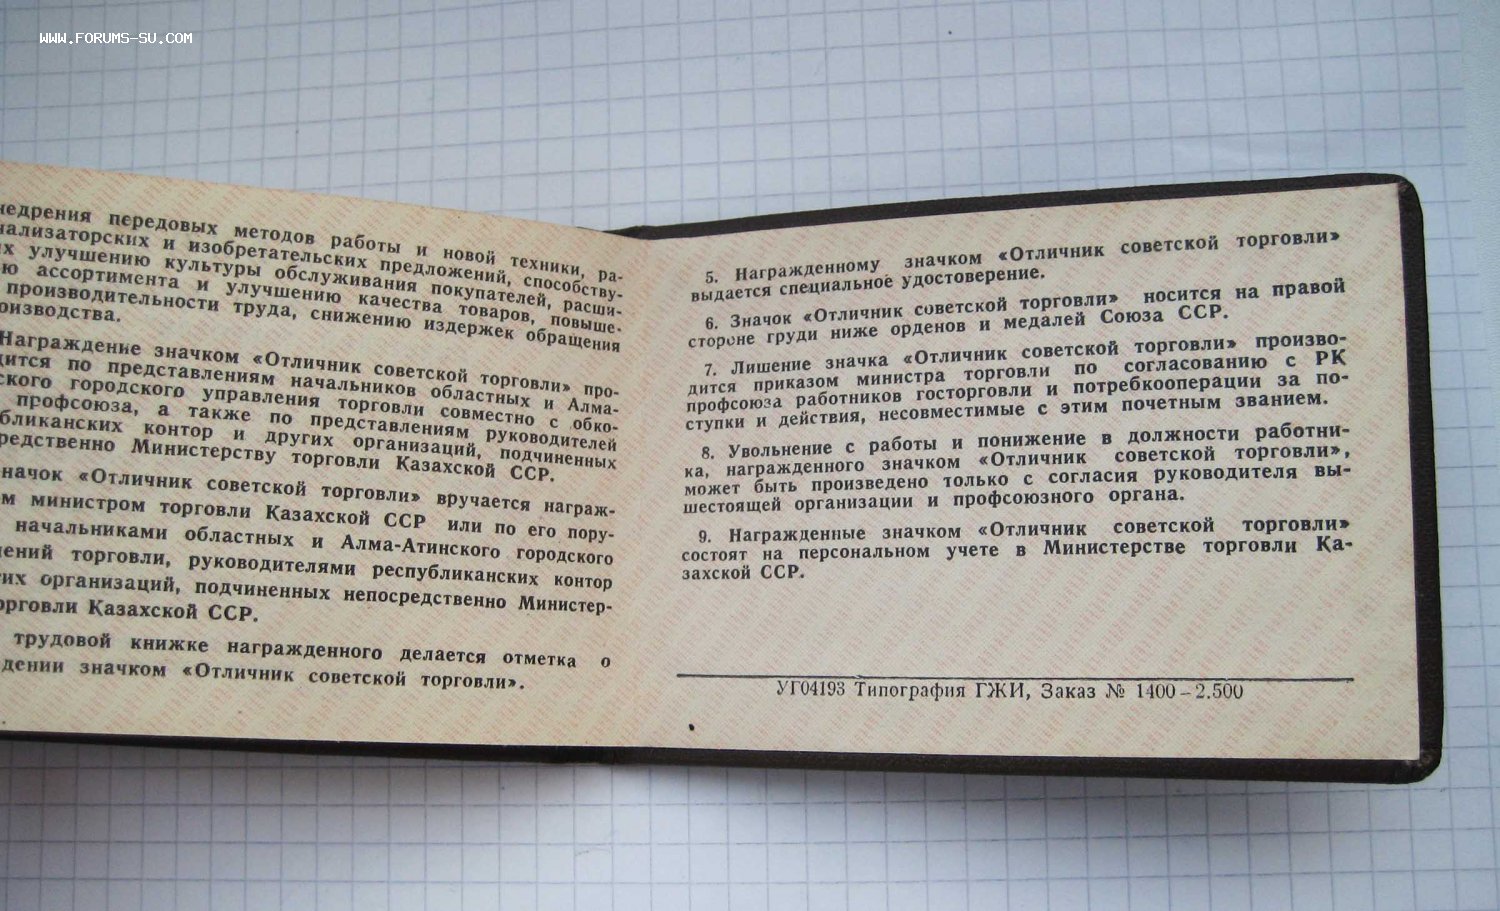 WWW.FORUMS-SU.COM
недрения передовых методов работы и новой техники, ра-
нализаторских и изобретательских предложений, способству-
х улучшению культуры обслуживания покупателей, расши-
ю ассортимента и улучшению качества товаров, повыше-
производительности труда, снижению издержек обращения
оизводства.
Награждение значком «Отличник советской торговли» про-
дится по представлениям начальников областных и Алма-
ского городского управления торговли совместно с обко-
профсоюза, а также по представлениям руководителей
бликанских контор и других организаций, подчиненных
редственно Министерству торговли Казахской ССР.
начок «Отличник советской торговли» вручается награж-
м министром торговли Казахской ССР или по его пору-
начальниками областных и Алма-Атинского городского
ений торговли, руководителями республиканских контор
гих организаций, подчиненных непосредственно Министер-
орговли Казахской ССР.
трудовой книжке награжденного делается отметка о
дении значком «Отличник советской торговли».
5. Награжденному значком «Отличник советской торговли»
выдается специальное удостоверение.
6. Значок «Отличник советской торговли» носится на правой
стороне груди ниже орденов и медалей Союза ССР.
7. Лишение значка «Отличник советской торговли» произво-
дится приказом министра торговли по согласованию с РК
профсоюза работников госторговли и потребкооперации за по-
ступки и действия, несовместимые с этим почетным званием.
8. Увольнение с работы и понижение в должности работни-
ка, награжденного значком «Отличник советской торговли»,
может быть произведено только с согласия руководителя вы-
шестоящей организации и профсоюзного органа.
9. Награжденные значком «Отличник советской торговли»
состоят на персональном учете в Министерстве торговли Ка-
захской ССР.
УГ04193 Типография ГЖИ, Заказ № 1400–2.500